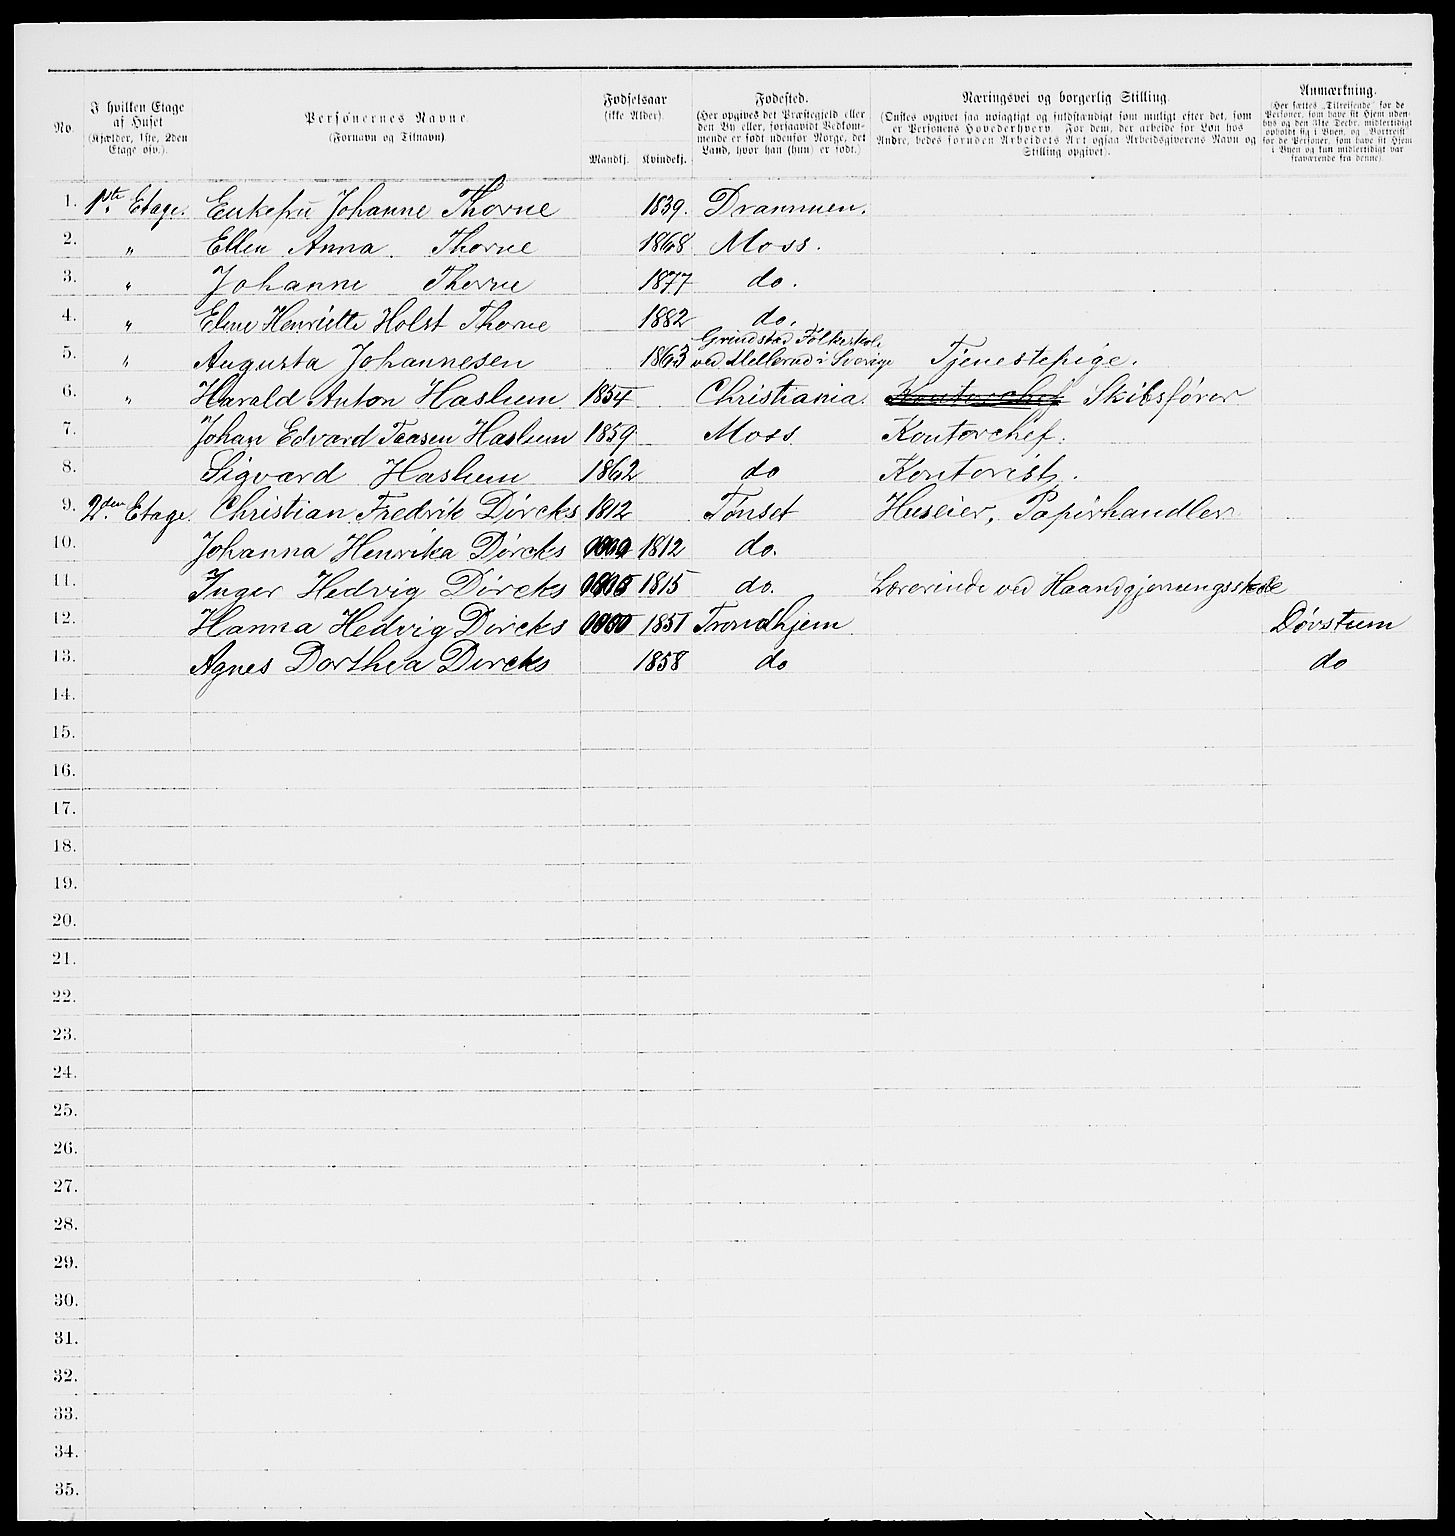 No.
I hvilken Etage af Huset
(Kjælder, 1ste, 2den Etage osv.).
Personernes Navne
(Fornavn og Tilnavn).
Fødselsaar
(ikke Alder).
Mandkj. Kvindekj.
Fødested.
(Her opgives det Præstegjeld eller
den By eller, forsaavidt Vedkom-
mende er født udenfor Norge, det
Land, hvor han (hun) er født.)
Næringsvei og borgerlig Stilling.
(Ønskes opgivet saa nøiagtigt og fuldstændigt som muligt efter det, som
er Personens Hovederhverv. For dem, der arbeide for Løn hos
Andre, bedes foruden Arbeidets Art ogsaa Arbeidsgiverens Navn og
Stilling opgivet).
Anmærkning.
(Her sættes „Tilreisende" for de
Personer, som have sit Hjem uden-
bys og den 31te Decbr. midlertidigt
opholdt sig i Byen, og „Bortreist"
for de Personer, som have sit Hjem
i Byen og kun midlertidigt var
fraværende fra denne).
1. 1ste Etage. Enkefru Johanne Thorne 1839. Drammen.
2. " Ellen Anna. Thorne 1868 Moss.
3. " Johanne Thorne 1877 do.
4. " Eline Henriette Holst Thorne 1882 do.
5. " Augusta Johannesen 1863 Grindstad Folkeskole
ved Mellerud i Sverige Tjenestepige.
6. " Harald Anton Haslum 1854 Christiania Kontorchef Skibsfører
7. Johan Edvard Taasen Haslum 1859 Moss Kontorchef.
8. Sigvard Haslum 1862 do Kontorist.
9. 2den Etage. Christian Fredrik Dircks 1812 Tønset Huseier, Papirhandler
10. Johanna Henrika Dircks 1812 do.
11. Inger Hedvig Dircks 1815 do. Lærerinde ved Haandgjerningsskole
12. Hanna Hedvig Dircks 1851 Trondhjem Døvstum
13. Agnes Dorthea Dircks 1858 do do
14.
15.
16.
17.
18.
19.
20.
21.
22.
23.
24.
25.
26.
27.
28.
29.
30.
31.
32.
33.
34.
35.